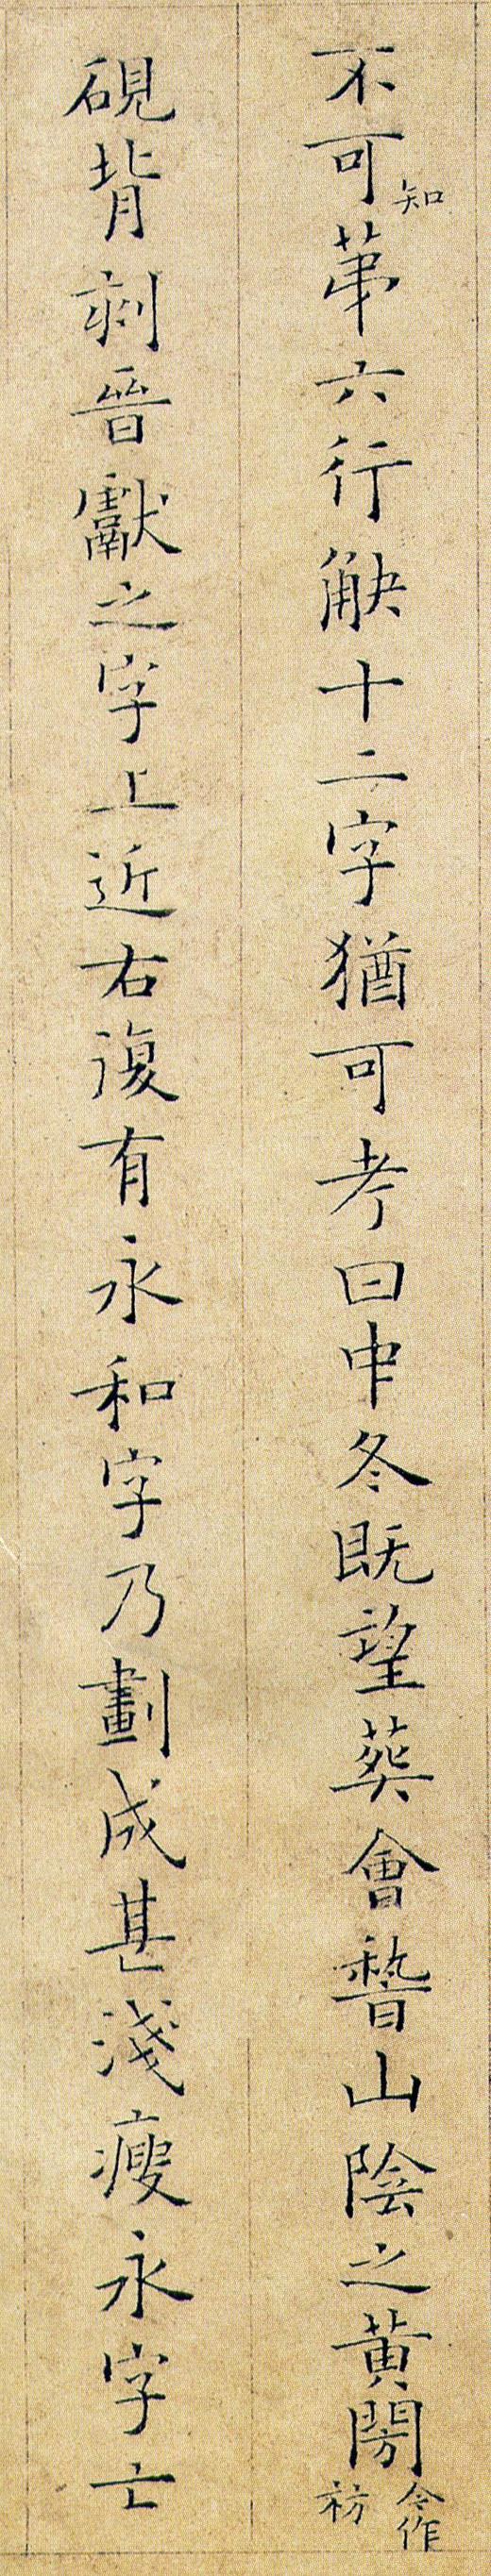 不可知苐六行缺十二字猶可考曰中冬既望葬會稽山陰之黃閍令作祊
硯背刻晉獻之字上近右復有永和字乃劃成甚淺瘦永字亡